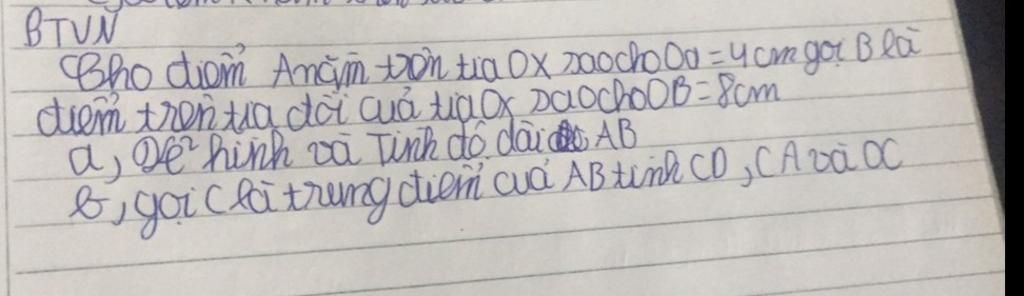 BTVN
Cho điểm A nằm trên tia Ox sao cho Oa = 4cm gọi B là
điểm trên tia đối của tia Ox sao cho OB = 8cm
a, Vẽ hình và Tính độ dài AB
b, gọi C là trung điểm của AB tính CO, CA và OC